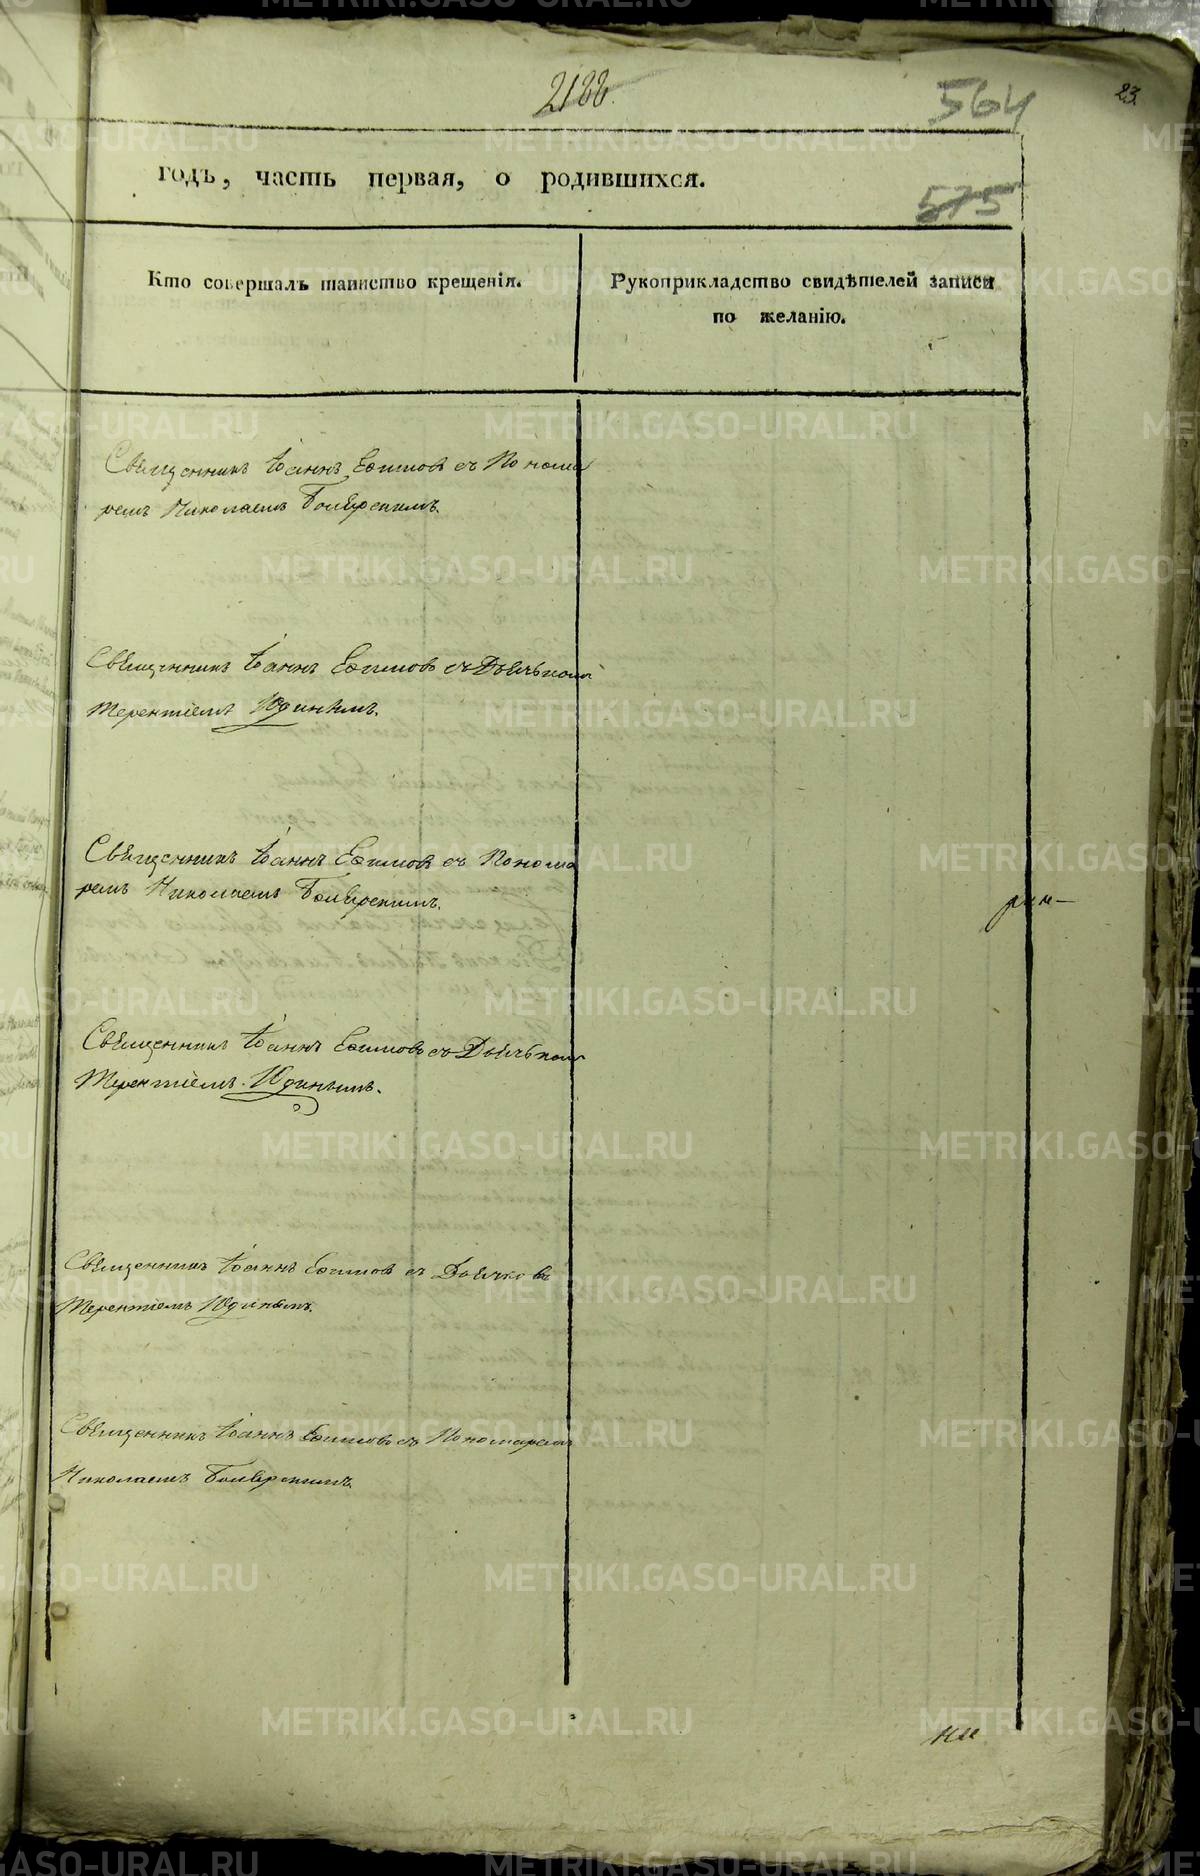 2188.
564
23.
575
годъ, часть первая, о родившихся.
Кто совершалъ таинство крещенія.
Рукоприкладство свидѣтелей записи
по желанію.
Священникъ Іоаннъ Ефимовъ съ Понома
ремъ Николаемъ
Священникъ Іоаннъ Ефимовъ съ Дьячькомъ
Терентіемъ Юдинымъ.
Священникъ Іоаннъ Ефимовъ съ Понома
ремъ Николаемъ
Священникъ Іоаннъ Ефимовъ съ Дьячькомъ
Терентіемъ Юдинымъ.
Священникъ Іоаннъ Ефимовъ съ
Терентіемъ Юдинымъ.
Священникъ Іоаннъ Ефимовъ съ Пономаремъ
Николаемъ
METRIKI.GASO-URAL.RU